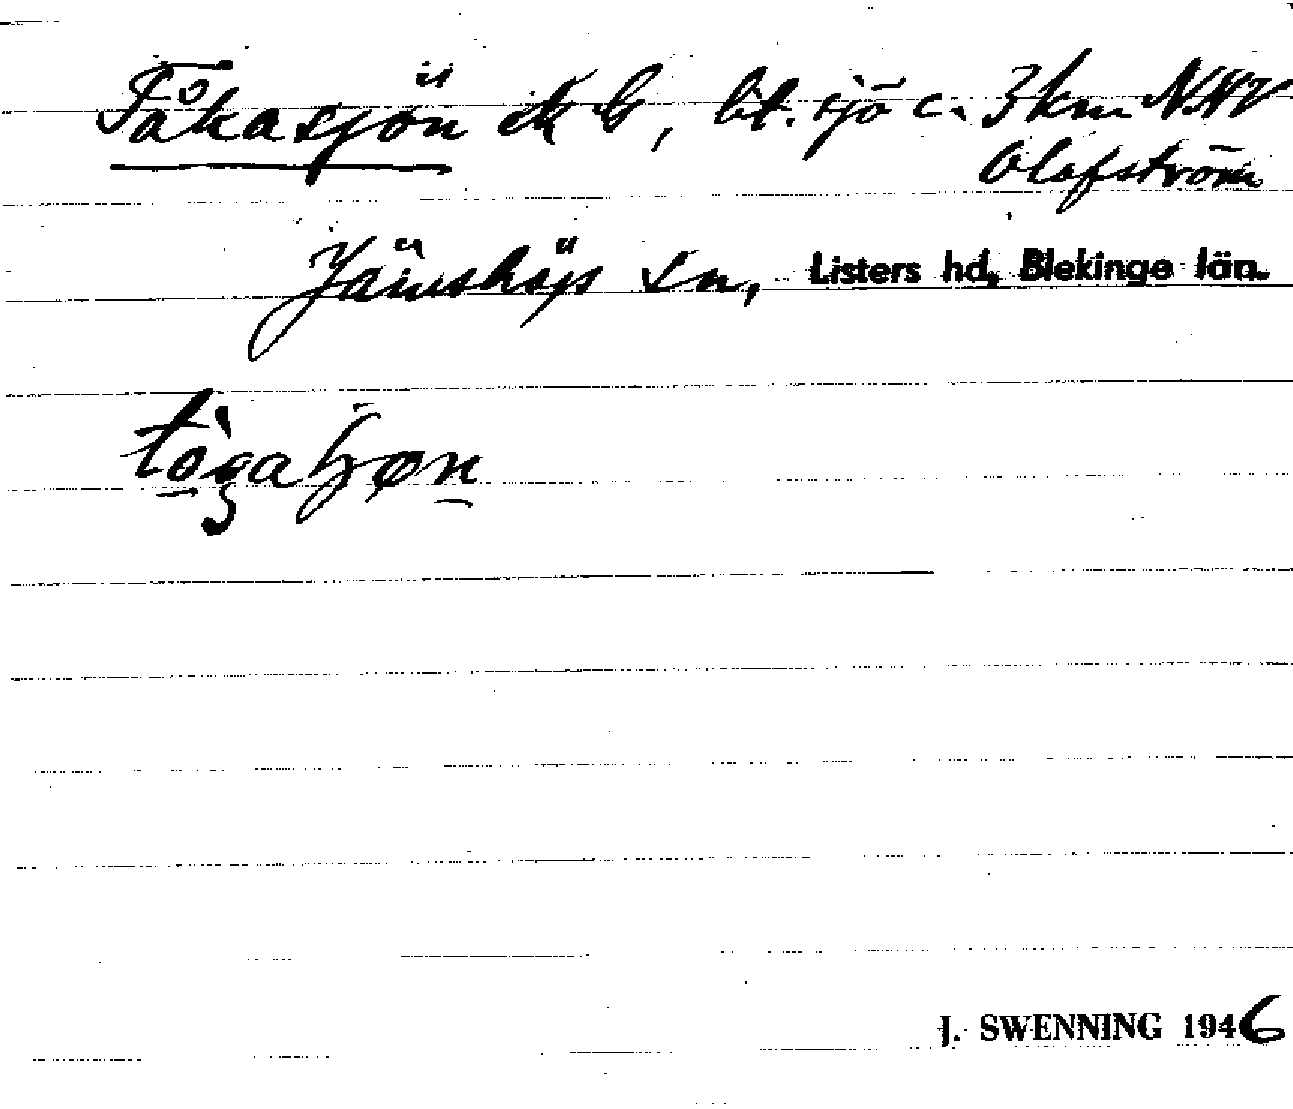 Tåkasjön ek b, lit. sjö c. 3 km NNV
Olofström
Jämshögs sn, Listers hd, Blekinge län.
J. SWENNING 1946